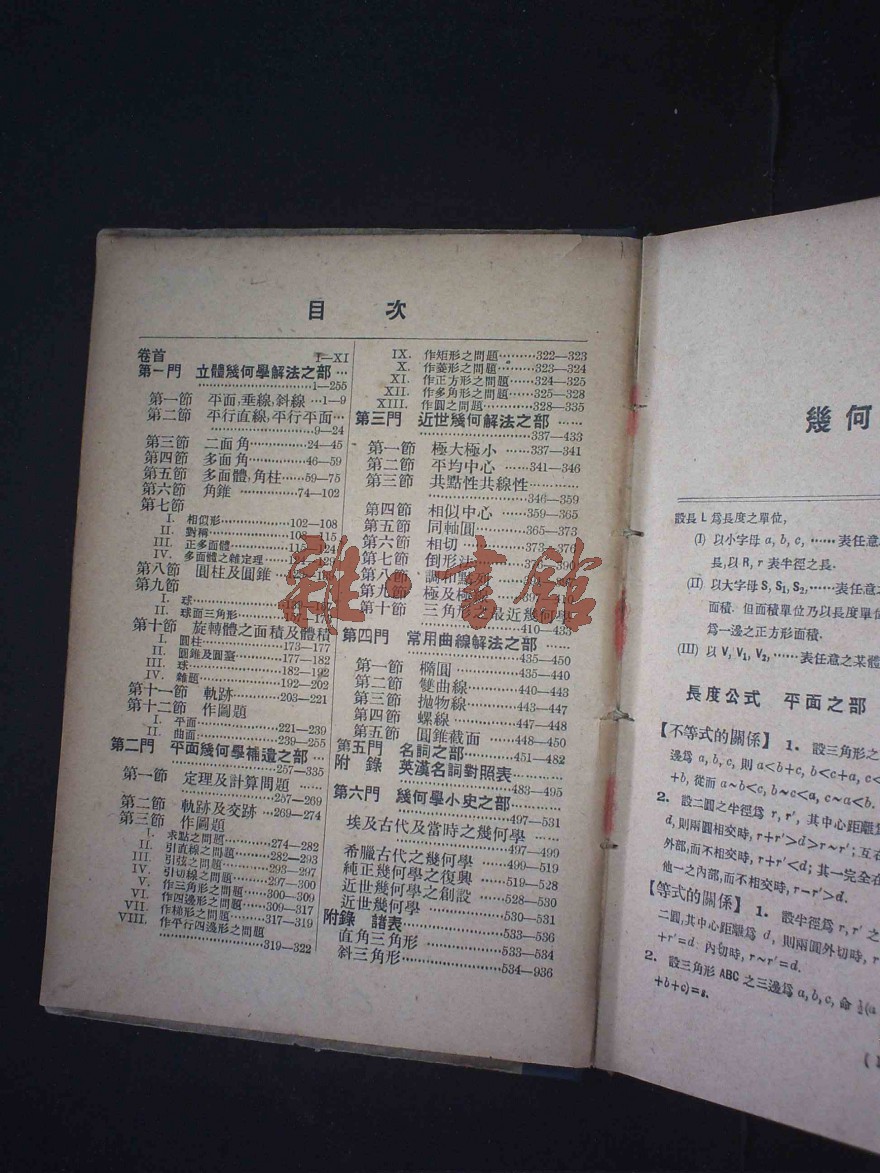 目 次
卷首 I—XI
第一門 立體幾何學解法之部 …
………………………1—255
第一節 平面,垂線,斜線 …1—9
第二節 平行直線,平行平面…
………………………9—24
第三節 二面角…………24—45
第四節 多面角…………46—59
第五節 多面體,角柱……59—75
第六節 角錐 …………74—102
第七節
I. 相似形…………102—108
II. 對稱…………108—115
III. 正多面體………115—124
IV. 多面體之雜定理
第八節 圓柱及圓錐
第九節
I. 球
II. 球面三角形
第十節 旋轉體之面積及體積
I. 圓柱…………173—177
II. 圓錐及圓臺………177—182
III. 球…………182—192
IV. 雜題…………192—202
第十一節 軌跡…………203—221
第十二節 作圖題
I. 平面…………221—239
II. 曲面…………239—255
第二門 平面幾何學補遺之部 …
………………………257—335
第一節 定理及計算問題 ……
………………………257—269
第二節 軌跡及交跡 …269—274
第三節 作圖題
I. 求點之問題………274—282
II. 引直線之問題……282—293
III. 引弦之問題………293—297
IV. 引切線之問題……297—300
V. 作三角形之問題…300—309
VI. 作四邊形之問題…309—317
VII. 作梯形之問題……317—319
VIII. 作平行四邊形之問題
………………………319—322
IX. 作矩形之問題………322—323
X. 作菱形之問題………323—324
XI. 作正方形之問題……324—325
XII. 作多角形之問題……325—328
XIII. 作圓之問題………328—335
第三門 近世幾何解法之部 ……
………………………337—433
第一節 極大極小 ……337—341
第二節 平均中心 ……341—346
第三節 共點性共線性……
………………………346—359
第四節 相似中心 ……359—365
第五節 同軸圓…………365—373
第六節 相切…………373—376
第七節 倒形法
第八節 調和點列
第九節 極及極線
第十節 三角形之最近幾何學
………………………410—433
第四門 常用曲線解法之部 ……
………………………435—450
第一節 橢圓…………435—440
第二節 雙曲線…………440—443
第三節 拋物線…………443—447
第四節 螺線…………447—448
第五節 圓錐截面 ……448—450
第五門 名詞之部…………451—482
附 錄 英漢名詞對照表……
………………………483—495
第六門 幾何學小史之部……
………………………497—531
埃及古代及當時之幾何學 …
………………………497—499
希臘古代之幾何學 ……499—519
純正幾何學之復興 ……519—528
近世幾何學之創設 ……528—530
近世幾何學 …………530—531
附錄 諸表…………533—536
直角三角形…………533—534
斜三角形…………534—936
雜·書館
幾何
設長 L 爲長度之單位,
(I) 以小字母 a, b, c, ……表任意
長,以 R, r 表半徑之長.
(II) 以大字母 S, S₁, S₂,……表任意
面積. 但面積單位乃以長度單位
爲一邊之正方形面積.
(III) 以 V, V₁, V₂, ……表任意之某體
長度公式 平面之部
【不等式的關係】 1. 設三角形之
邊爲 a, b, c, 則 a<b+c, b<c+a, c<
+b, 從而 a~b<c, b~c<a, c~a<b.
2. 設二圓之半徑爲 r, r′, 其中心距離爲
d, 則兩圓相交時, r+r′>d>r~r′; 互在
外部,而不相交時, r+r′<d; 其一完全在
他一之內部,而不相交時, r~r′>d.
【等式的關係】 1. 設半徑爲 r, r′ 之
二圓,其中心距離爲 d, 則兩圓外切時, r
+r′=d. 內切時, r~r′=d.
2. 設三角形 ABC 之三邊爲 a, b, c, 命 ½(a
+b+c)=s.